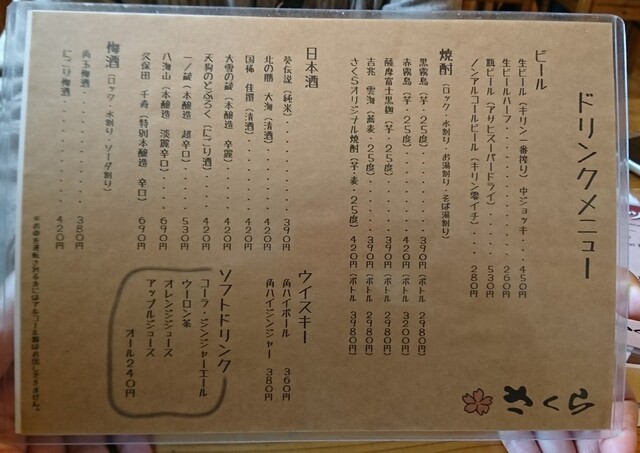 ドリンクメニュー
ビール
生ビール(キリン一番搾り) 中ジョッキ・・450円
生ビールハーフ・・・・・・・・260円
瓶ビール(アサヒスーパードライ)・・・・530円
ノンアルコールビール(キリン零イチ)・・280円
焼酎(ロック・水割り・お湯割り・そば湯割り)
黒霧島(芋・25度)・・・・・390円(ボトル 2980円)
赤霧島(芋・25度)・・・・・420円(ボトル 3200円)
薩摩富士黒麹(芋・25度)・・・390円(ボトル 2980円)
吉兆 雲海(蕎麦・25度)・・・390円(ボトル 2980円)
さくらオリジナル焼酎(芋・麦・25度)420円(ボトル 3980円)
日本酒
葵伝説(純米)・・・・・・・390円
北の勝 大海(清酒)・・・・・420円
国稀 佳撰(清酒)・・・・・・420円
大雪の蔵(本醸造 辛麗)・・・420円
天狗のどぶろく(にごり酒)・・・420円
一ノ蔵(本醸造 超辛口)・・・530円
八海山(本醸造 淡麗辛口)・・・690円
久保田 千寿(特別本醸造 辛口)・690円
梅酒(ロック・水割り・ソーダ割り)
にごり梅酒・・・・・・・420円
380円
ウイスキー
角ハイボール 360円
角ハイジンジャー 380円
ソフトドリンク
コーラ・ジンジャーエール
ウーロン茶
オレンジジュース
アップルジュース
オール240円
※お車を運転される方にはアルコール類はお出しできません。
さくら